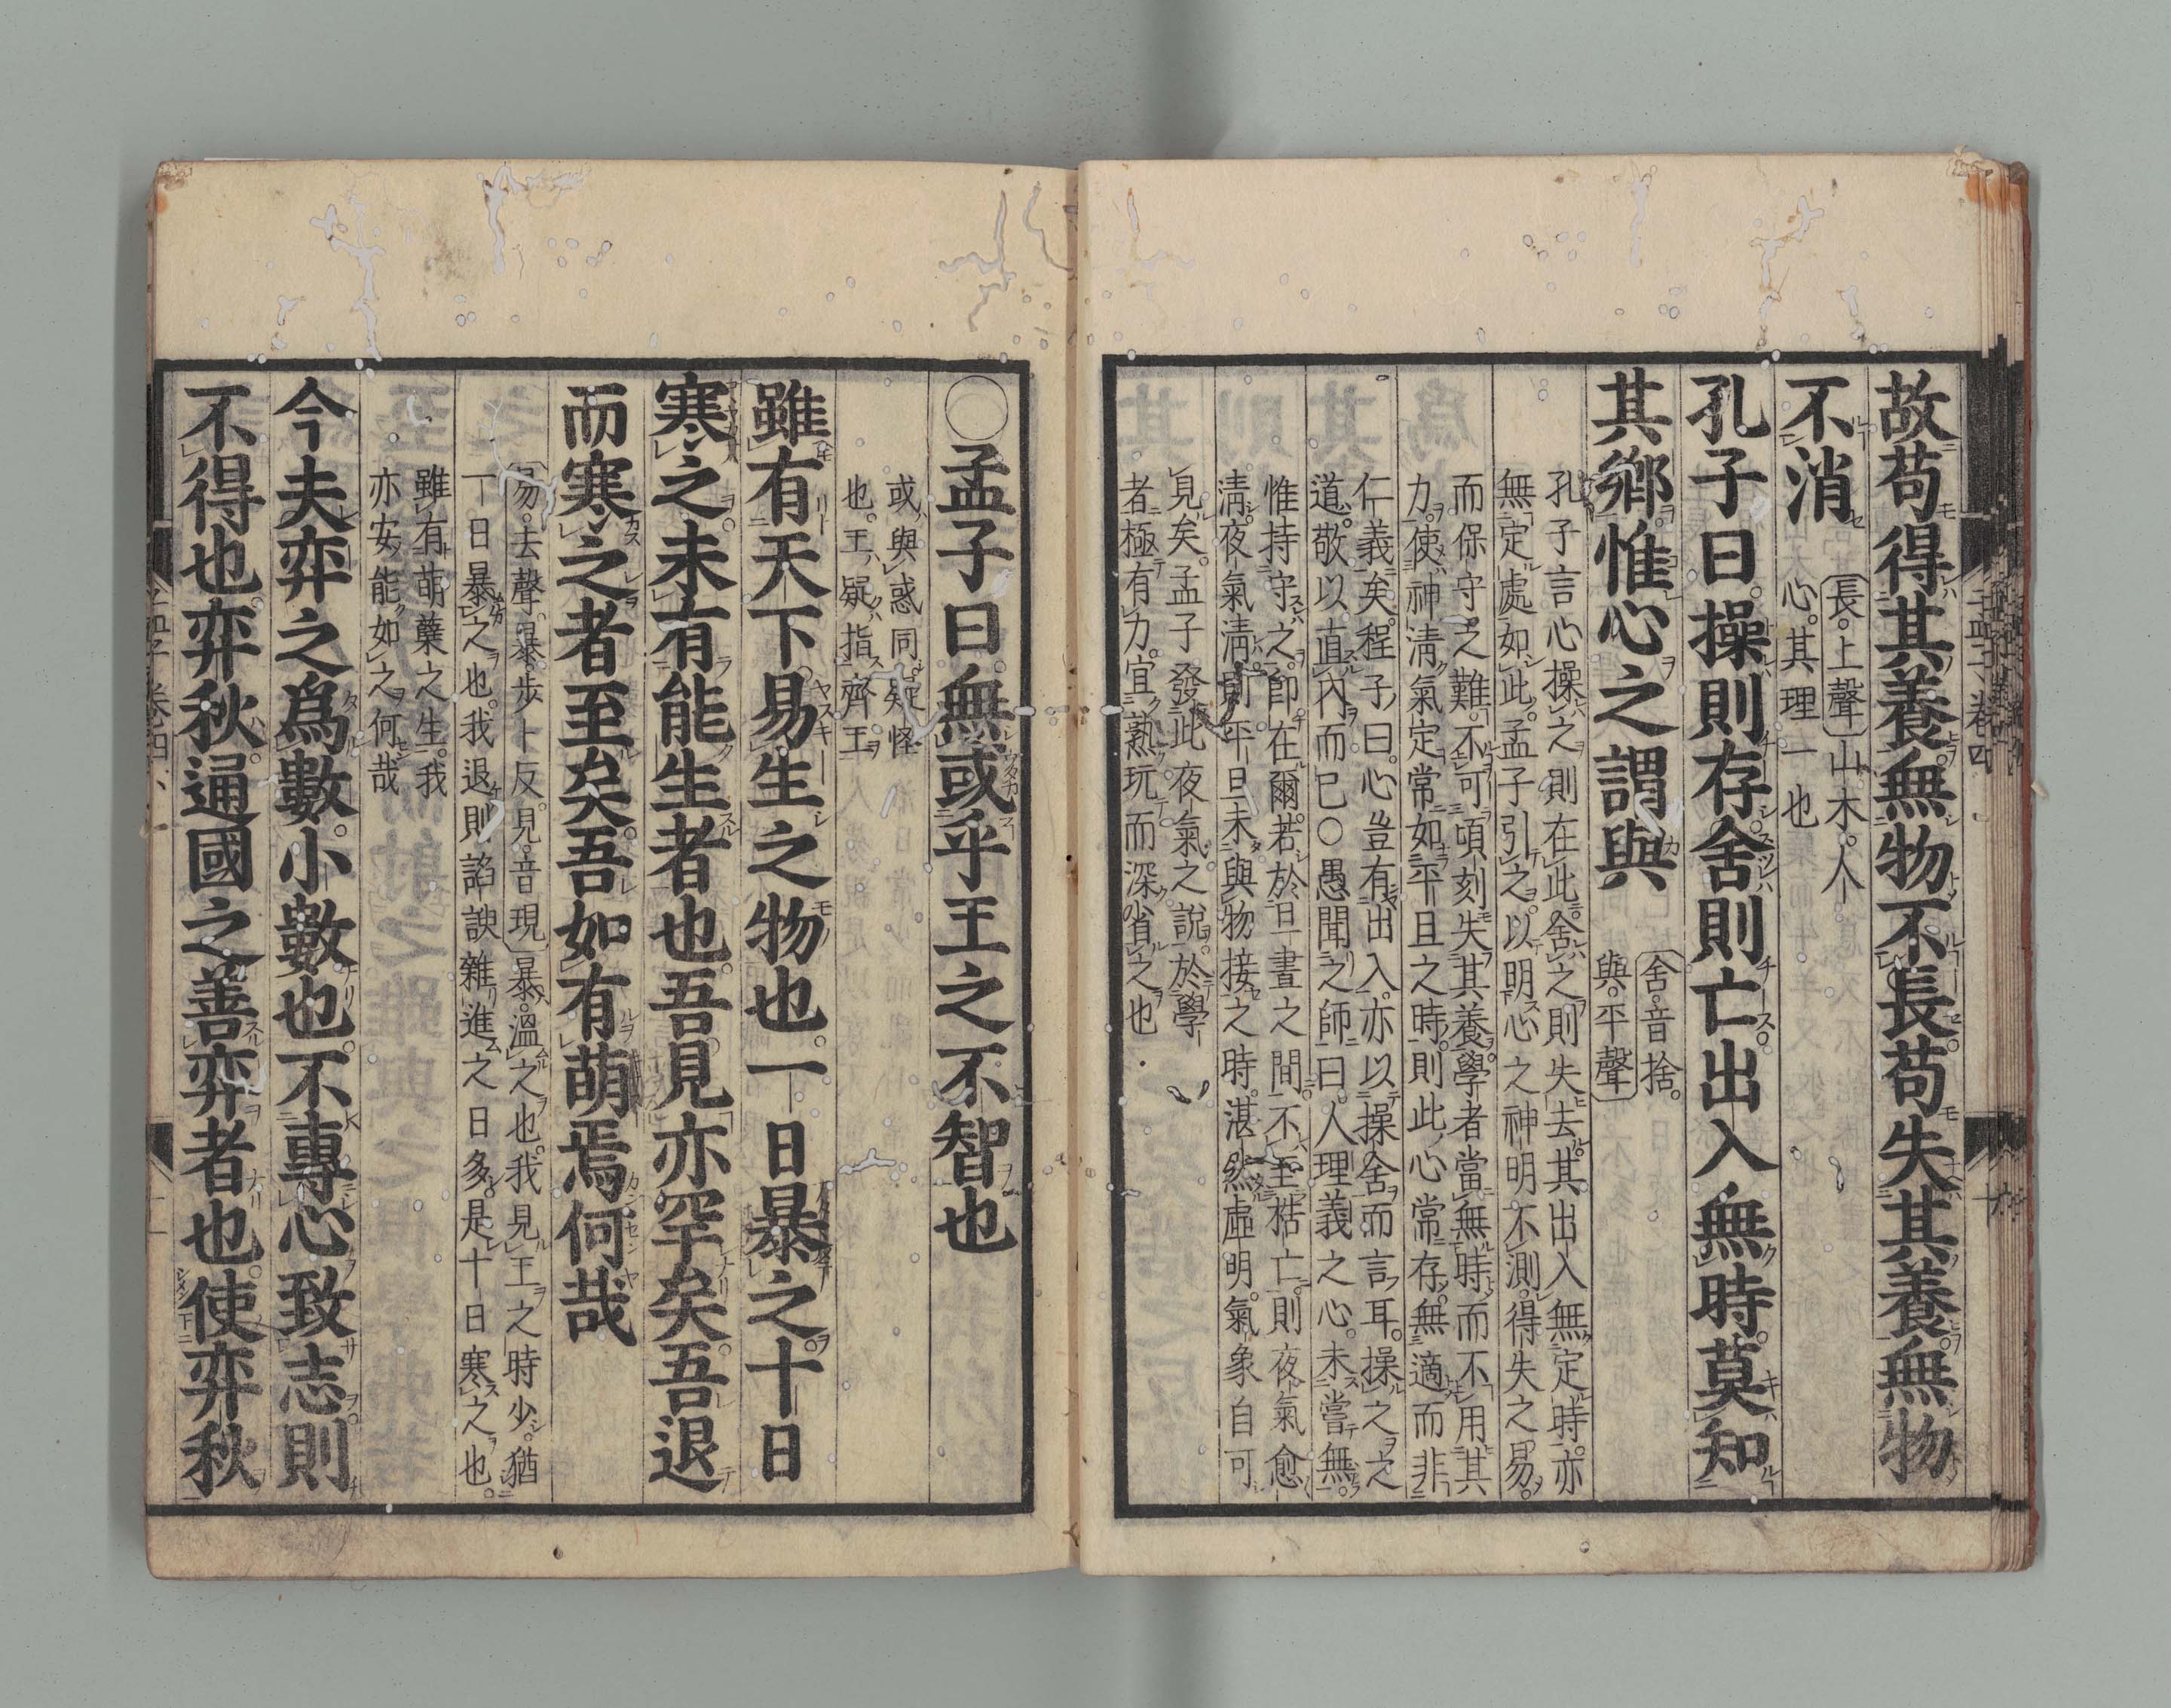 故苟得其養無物不長苟失其養無物
不消
長上聲山木人
心其理一也
孔子曰操則存舍則亡出入無時莫知
其鄉惟心之謂與
舍音捨
與平聲
孔子言心操之則在此舍之則失去其出入無定時亦
無定處如此孟子引之以明心之神明不測得失之易
而保守之難不可頃刻失其養學者當無時而不用其
力使神清氣定常如平旦之時則此心常存無適而非
仁義矣程子曰心豈有出入亦以操舍而言耳操之之
道敬以直內而已○愚聞之師曰人理義之心未嘗無
惟持守之即在爾若於旦晝之間不至梏亡則夜氣愈
清夜氣清則平旦未與物接之時湛然虛明氣象自可
見矣孟子發此夜氣之說於學
者極有力宜熟玩而深省之也
○孟子曰無或乎王之不智也
或與惑同疑怪
也王疑指齊王
雖有天下易生之物也一日暴之十日
寒之未有能生者也吾見亦罕矣吾退
而寒之者至矣吾如有萌焉何哉
易去聲暴步卜反見音現暴溫之也我見王之時少猶
一日暴之也我退則諂諛雜進之日多是十日寒之也
雖有萌蘖之生我
亦安能如之何哉
今夫弈之爲數小數也不專心致志則
不得也弈秋通國之善弈者也使弈秋